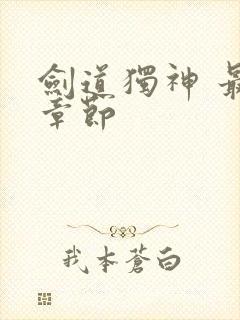 劍道獨神 最
章節
我本蒼白